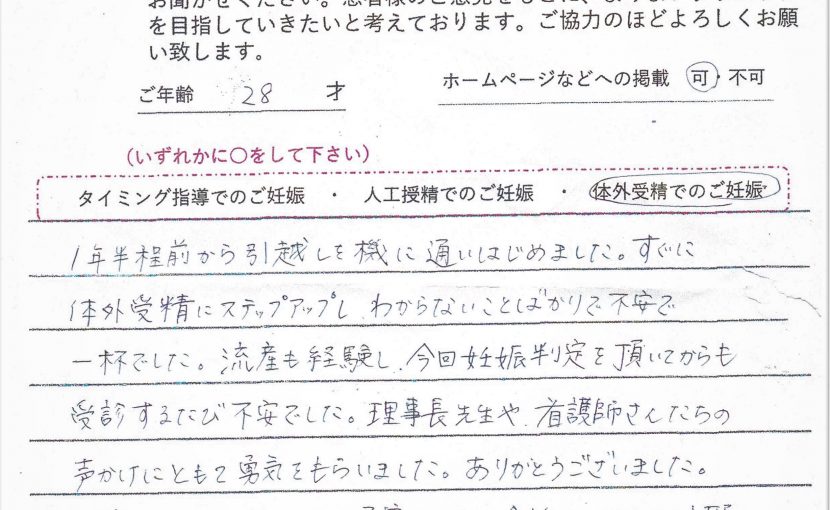 を目指していきたいと考えております。ご協力のほどよろしくお願
い致します。
ご年齢 28 才
ホームページなどへの掲載 可・不可
(いずれかに〇をして下さい)
タイミング指導でのご妊娠 ・ 人工授精でのご妊娠 ・ 体外受精でのご妊娠
1年半程前から引越しを機に通いはじめました。すぐに
体外受精にステップアップし、わからないことばかりで不安で
一杯でした。流産も経験し、今回妊娠判定を頂いてからも
受診するたび不安でした。理事長先生や、看護師さんたちの
声かけにとても勇気をもらいました。ありがとうございました。